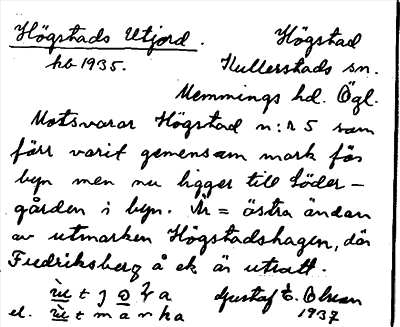 Högstads Utjord. Högstad
hb 1935. Kullerstads sn.
Memmings hd. Ögl.
Motsvarar Högstad n:r 5 som
förr varit gemensam mark för
byn men nu ligger till Söder-
gården i byn. Är = östra ändan
av utmarken Högstadshagen, där
Fredriksberg å ek är utsatt.
Gustaf E. Olsson
el. 1937